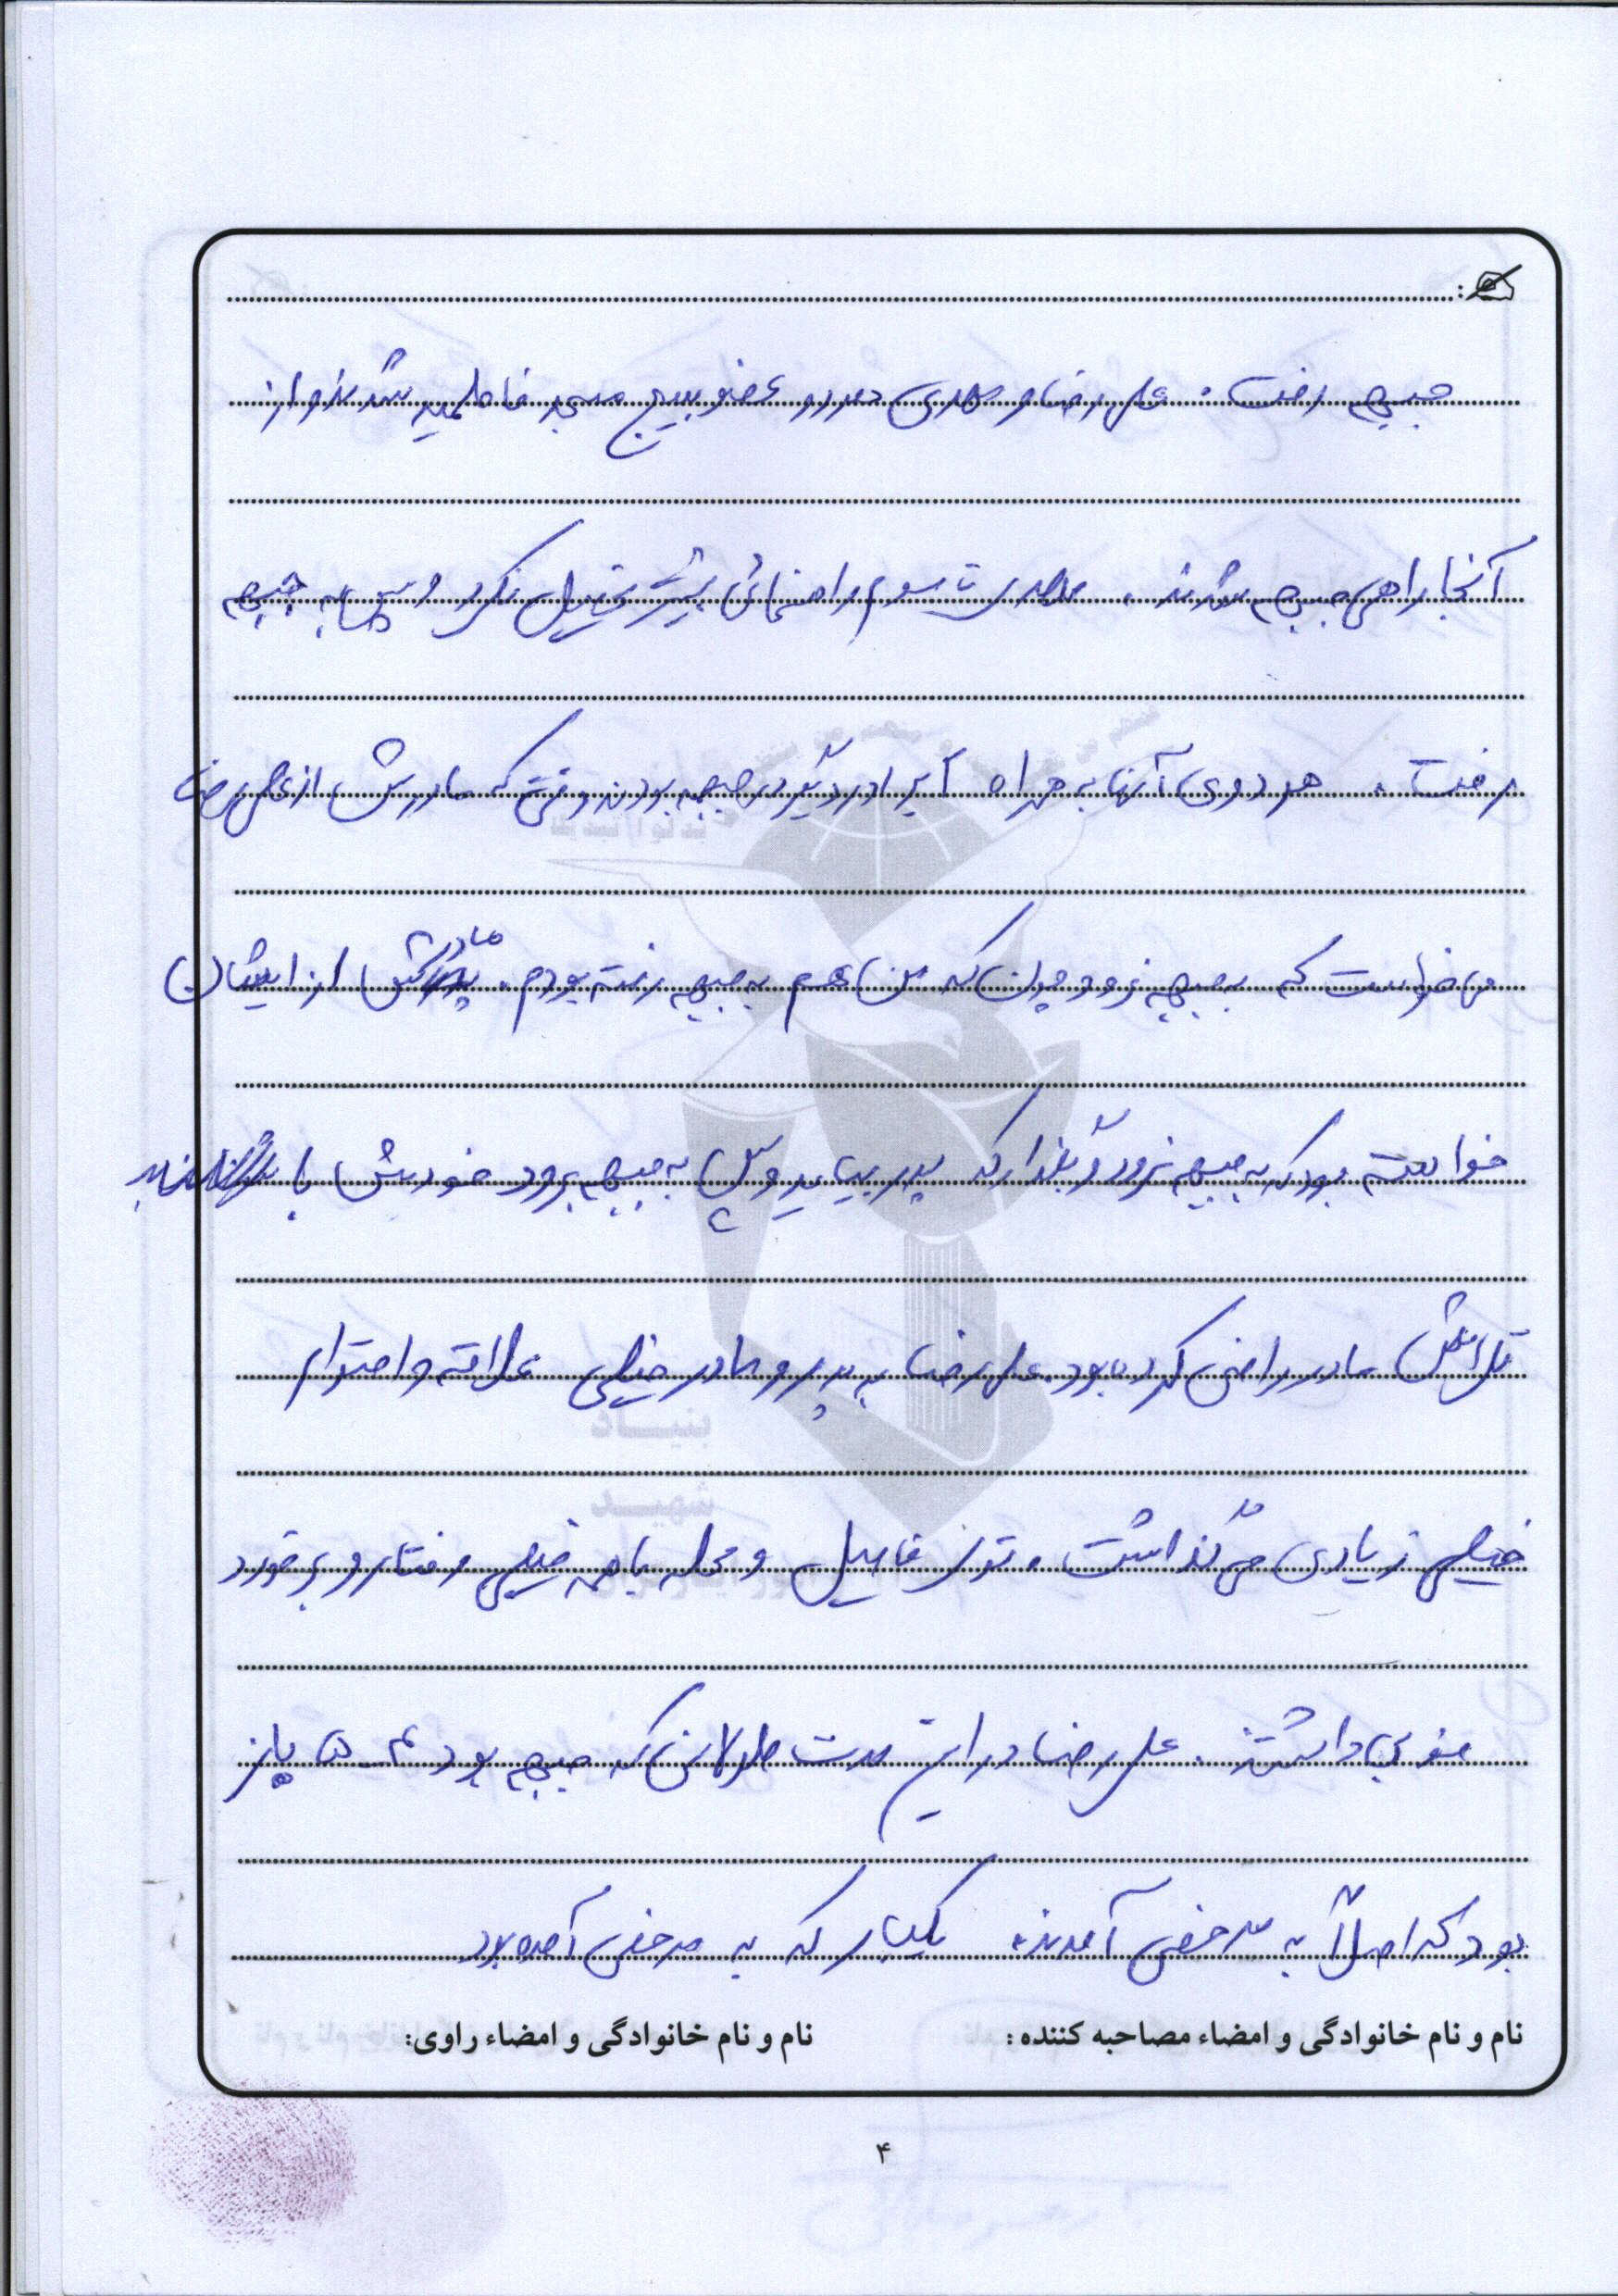 جبهه رفت. علی رضا و مهدی هر دو عضو بسیج مسجد فاطمیه شدند و از
آنجا راهی جبهه شدند. مهدی تا سوم راهنمائی بیشتر تحصیل نکرد و سپس به جبهه
رفت. هر دوی آنها به همراه برادر دیگر در جبهه بودند وقتی که مادرش از علی رضا
می خواست که به جبهه نرود و چون که من هم به جبهه رفته بودم. مادرش از ایشان
خواسته بود که به جبهه نرود و بگذار که پدر بیاید و سپس به جبهه برود خودش با
مادر را راضی کرده بود. علی رضا به پدر و مادر خیلی علاقه و احترام
خیلی زیادی می گذاشت. توی فامیل و محله با همه خیلی رفتار و برخورد
خوبی داشتند. علی رضا در این مدت طولانی که جبهه بود
بود که اصلاً به مرخصی آمدند. یکبار که به مرخصی آمده بود
نام و نام خانوادگی و امضاء مصاحبه کننده: نام و نام خانوادگی و امضاء راوی:
بنیاد
شهید
۴